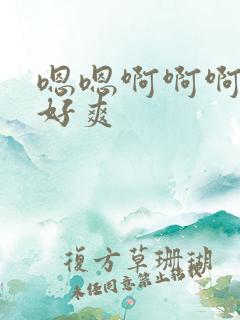 嗯嗯啊啊啊
好爽
復方草珊瑚
未经同意禁止转载